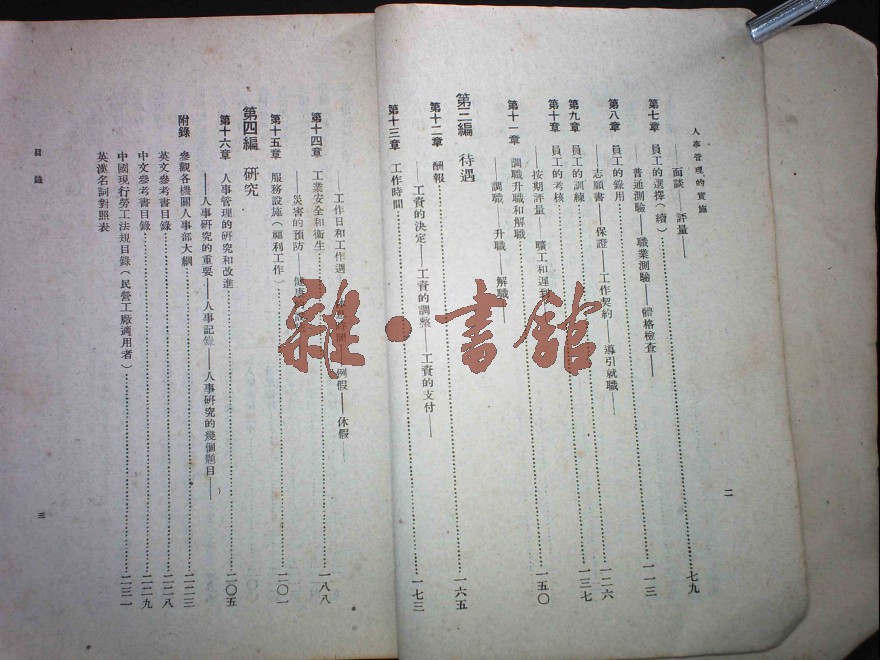 人事管理的實施
二
——面談——評量——
七九
第七章 員工的選擇(續)
一一三
——普通測驗——職業測驗——體格檢查——
第八章 員工的錄用
一二六
——志願書——保證——工作契約——導引就職——
第九章 員工的訓練
一三七
第十章 員工的考核
一五〇
——按期評量——曠工和遲到
第十一章 調職升職和解職
——調職——升職——解職——
第三編 待遇
第十二章 酬報
一六五
——工資的決定——工資的調整——工資的支付——
第十三章 工作時間
一七三
——工作日和工作週 例假——休假——
第十四章 工業安全和衛生
一八八
——災害的預防——健康
第十五章 服務設施(福利工作)
二〇一
第四編 研究
第十六章 人事管理的研究和改進
二〇五
——人事研究的重要——人事記錄——人事研究的幾個題目——
附錄 參觀各機關人事部大綱
二二三
英文參考書目錄
二二八
中文參考書目錄
二二九
中國現行勞工法規目錄(民營工廠適用者)
二三一
英漢名詞對照表
目錄
三
雜·書館